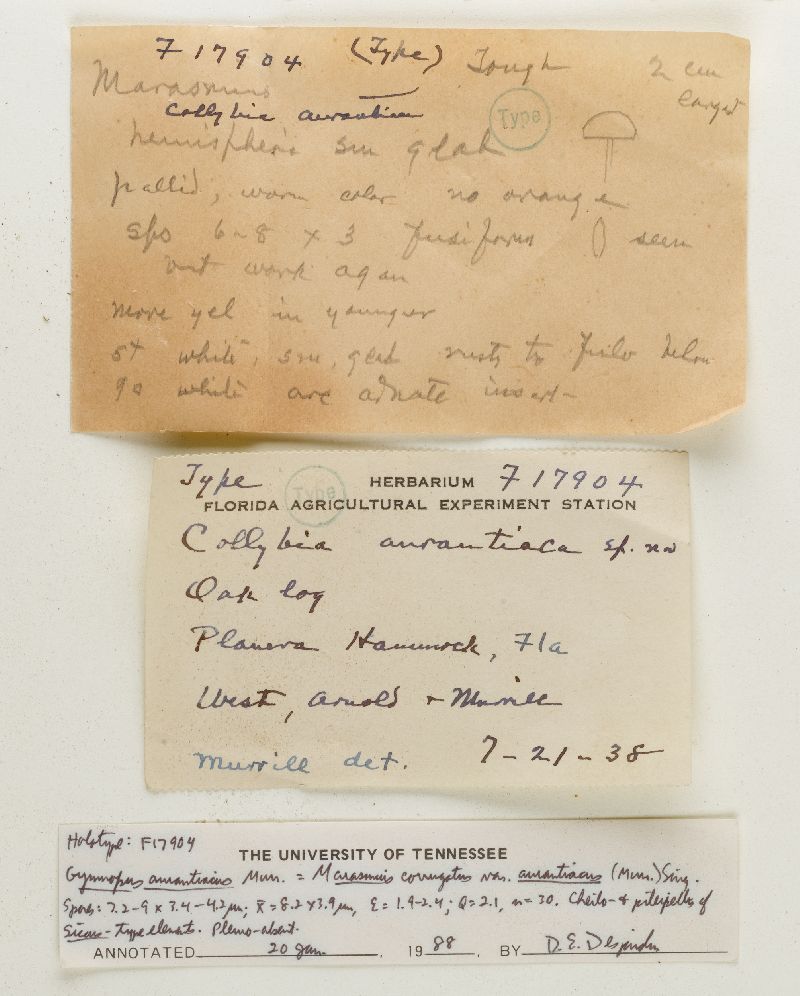 F 17904 (Type) Tough 2 cm
Marasmius largest
Collybia aurantiaca Type
hemispheric sm glab
pallid, warm color no orange
sps 6-8 x 3 fusiform seen
work again
more yel in younger
st white, sm, glab to below
white arc adnate insert-
Type HERBARIUM F 17904
Type
FLORIDA AGRICULTURAL EXPERIMENT STATION
Collybia aurantiaca sp. no
Oak log
Planera Hammock, Fla
West, Arnold + Murrill
Murrill det. 7-21-38
Holotype: F17904
THE UNIVERSITY OF TENNESSEE
Gymnopus aurantiacus Murr. = Marasmius corrugatus var. aurantiacus (Murr.) Sing.
Spores: 7.2-9 x 3.4-4.2 µm; x̄ = 8.2 x 3.9 µm, E = 1.9-2.4; Q = 2.1, n = 30. Cheilo- & pileipellis of
Siccus-type elements. Pleuro-absent.
ANNOTATED 20 Jan. 1988. BY D.E. Desjardin